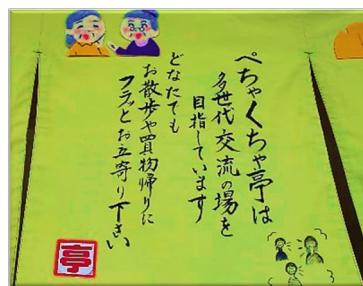 ぺちゃくちゃ亭は
多世代交流の場を
目指しています
どなたでも
お散歩や買物帰りに
フラッとお立寄り下さい
亭